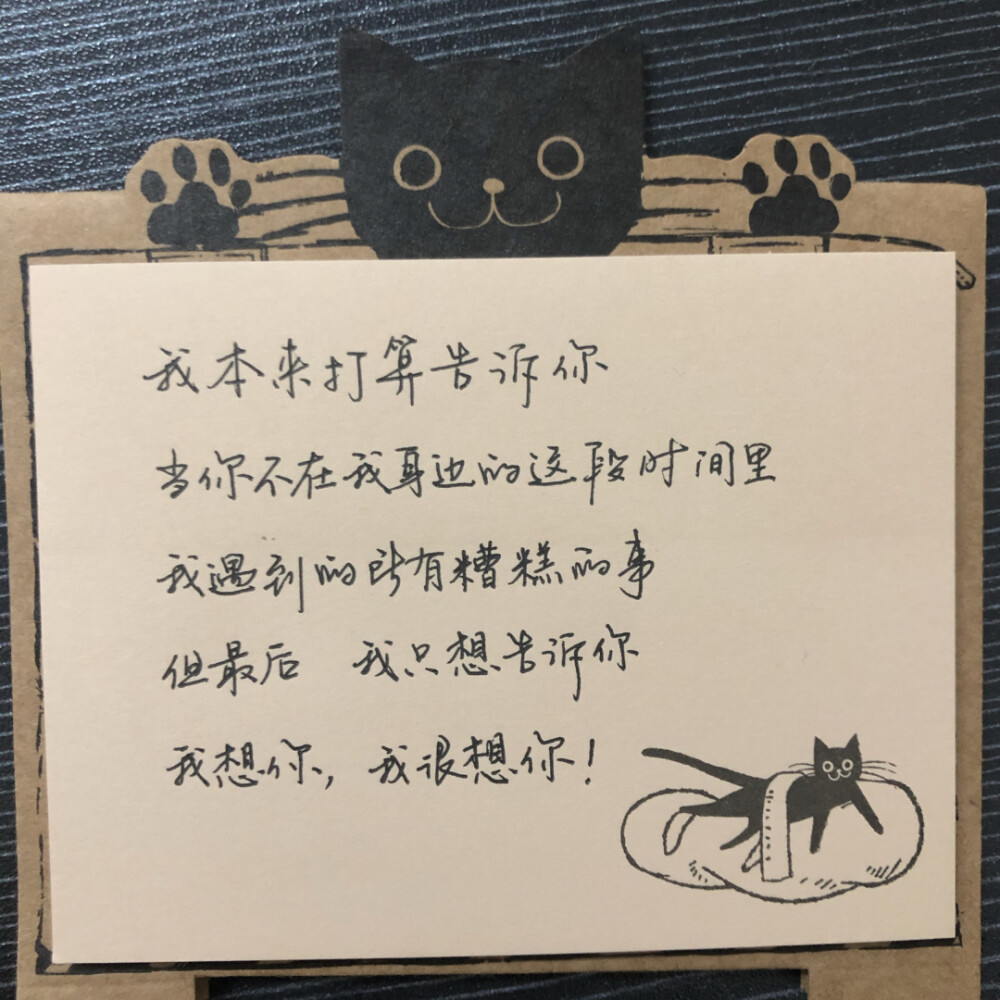 我本来打算告诉你
当你不在我身边的这段时间里
我遇到的所有糟糕的事
但最后 我只想告诉你
我想你,我很想你!